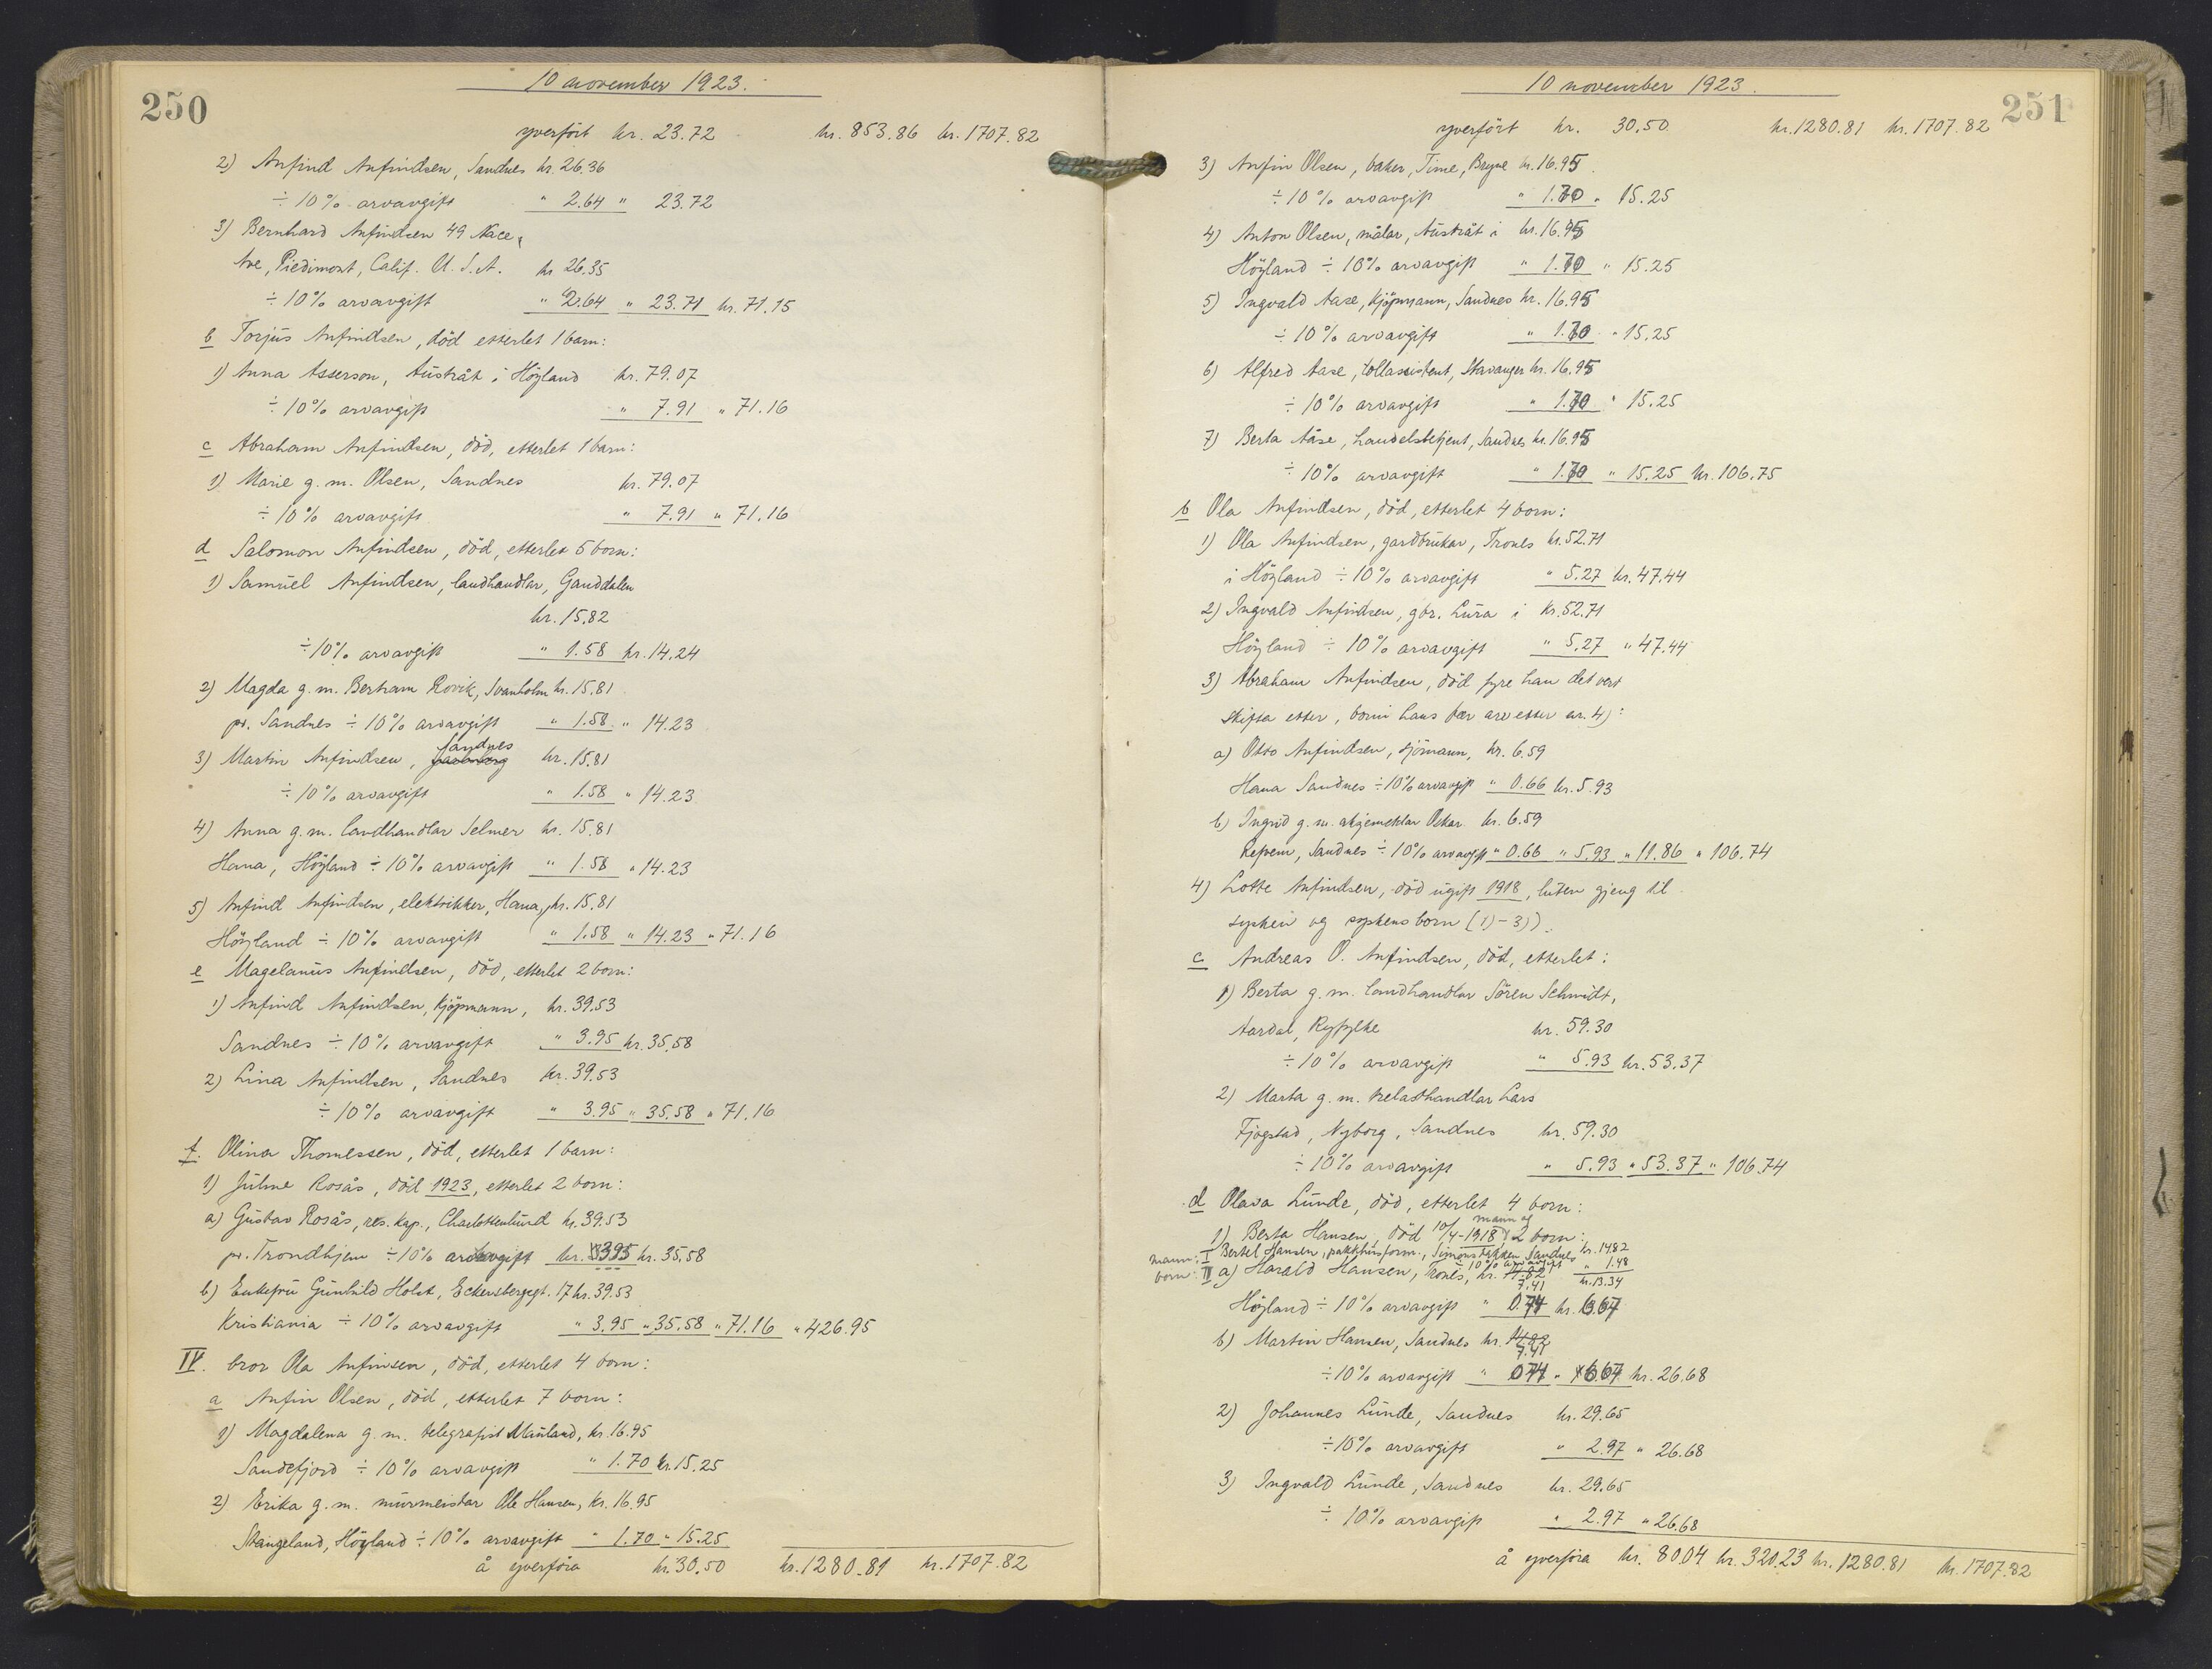 250
10 november 1923.
yverfört kr. 23.72 kr. 853.86 kr. 1707.82
2) Anfind Anfindsen, Sandnes kr. 26.36
÷ 10% arvavgift " 2.64 " 23.72
3) Bernhard Anfindsen 49 Nace,
Ave, Piedimont, Calif. U.S.A. kr 26.35
÷ 10% arvavgift " 2.64 " 23.71 kr. 71.15
b Torjus Anfindsen, död etterlet 1 barn:
1) Anna Asserson, Austråt i Höyland kr. 79.07
÷ 10% arvavgift " 7.91 " 71.16
c Abraham Anfindsen, död, etterlet 1 barn:
1) Marie g.m. Olsen, Sandnes kr. 79.07
÷ 10% arvavgift " 7.91 " 71.16
d Salomon Anfindsen, död, etterlet 5 born:
1) Samuel Anfindsen, landhandlar, Ganddalen
kr. 15.82
÷ 10% arvavgift " 1.58 kr. 14.24
2) Magda g.m. Bertram Rovik, Svanholm kr. 15.81
pr. Sandnes ÷ 10% arvavgift " 1.58 " 14.23
3) Martin Anfindsen, Sandnes kr. 15.81
÷ 10% arvavgift " 1.58 " 14.23
4) Anna g.m. landhandlar Selmer kr. 15.81
Hana, Höyland ÷ 10% arvavgift " 1.58 " 14.23
5) Anfind Anfindsen, elektrikker, Hana, kr. 15.81
Höyland ÷ 10% arvavgift " 1.58 " 14.23 " 71.16
e Magelanus Anfindsen, död, etterlet 2 born:
1) Anfind Anfindsen, kjöpmann, kr. 39.53
Sandnes ÷ 10% arvavgift " 3.95 kr. 35.58
2) Lina Anfindsen, Sandnes kr. 39.53
÷ 10% arvavgift " 3.95 " 35.58 " 71.16
f. Olina Thomessen, död, etterlet 1 barn:
1) Juline Rosås, död 1923, etterlet 2 born:
a) Gustav Rosås, res. kap., Charlottenlund kr. 39.53
pr. Trondhjem ÷ 10% arvavgift kr. 3.95 kr. 35.58
b) Enkefru Gunhild Holst, Eckersbergsgt. 17 kr. 39.53
Kristiania ÷ 10% arvavgift " 3.95 " 35.58 " 71.16 " 426.95
IV. bror Ola Anfinsen, död, etterlet 4 born:
a Anfin Olsen, död, etterlet 7 born:
1) Magdalena g.m. telegrafist Mauland, kr. 16.95
Sandefjord ÷ 10% arvavgift " 1.70 kr. 15.25
2) Erika g.m. murmeistar Ole Hansen, kr. 16.95
Stangeland, Höyland ÷ 10% arvavgift " 1.70 " 15.25
å yverföra kr. 30.50 kr. 1280.81 kr. 1707.82
251
10 november 1923.
yverfört kr. 30.50 kr. 1280.81 kr. 1707.82
3) Anfin Olsen, baker, Time, Bryne kr. 16.95
÷ 10% arvavgift " 1.70 " 15.25
4) Anton Olsen, målar, Austråt i kr. 16.95
Höyland ÷ 10% arvavgift " 1.70 " 15.25
5) Ingvald Aase, kjöpmann, Sandnes kr. 16.95
÷ 10% arvavgift " 1.70 " 15.25
6) Alfred Aase, tollassistent, Stavanger kr. 16.95
÷ 10% arvavgift " 1.70 " 15.25
7) Berta Åse, handelsbetjent, Sandnes kr. 16.95
÷ 10% arvavgift " 1.70 " 15.25 kr. 106.75
b Ola Anfindsen, död, etterlet 4 born:
1) Ola Anfindsen, gardbrukar, Trones kr. 52.71
i Höyland ÷ 10% arvavgift " 5.27 kr. 47.44
2) Ingvald Anfindsen, gbr. Lura i kr. 52.71
Höyland ÷ 10% arvavgift " 5.27 " 47.44
3) Abraham Anfindsen, död fyre han det vert
skifta etter, borni hans fær arv etter nr. 4):
a) Otto Anfindsen, sjömann, kr. 6.59
Hana Sandnes ÷ 10% arvavgift " 0.66 kr. 5.93
b) Ingrid g.m. aksjemeklar Oskar kr. 6.59
Refvem, Sandnes ÷ 10% arvavgift " 0.66 " 5.93 " 11.86 " 106.74
4) Lotte Anfindsen, död ugift 1918, luten gjeng til
syskin og syskensborn (1)-3)).
c Andreas O. Anfindsen, död, etterlet:
1) Berta g.m. landhandlar Sören Schmidt,
Aardal, Ryfylke kr. 59.30
÷ 10% arvavgift " 5.93 kr. 53.37
2) Marta g.m. kelasthandlar Lars
Fjogstad, Nyborg, Sandnes kr. 59.30
÷ 10% arvavgift " 5.93 " 53.37 " 106.74
d Olava Lunde, död, etterlet 4 born:
1) Berta Hansen, död 10/4-1918, mann og 2 born:
mann: I Bertel Hansen, pakkhusform., Simonsbakken Sandnes kr. 14.82
÷ 10% arvavgift " 1.48
kr. 13.34
born: II a) Harald Hansen, Trones, kr. 14.82 7.41
Höyland ÷ 10% arvavgift " 0.74 kr. 6.67
b) Martin Hansen, Sandnes kr. 14.82 7.41
÷ 10% arvavgift " 0.74 " 6.67 kr. 26.68
2) Johannes Lunde, Sandnes kr. 29.65
÷ 10% arvavgift " 2.97 " 26.68
3) Ingvald Lunde, Sandnes kr. 29.65
÷ 10% arvavgift " 2.97 " 26.68
å yverföra kr. 80.04 kr. 320.23 kr. 1280.81 kr. 1707.82